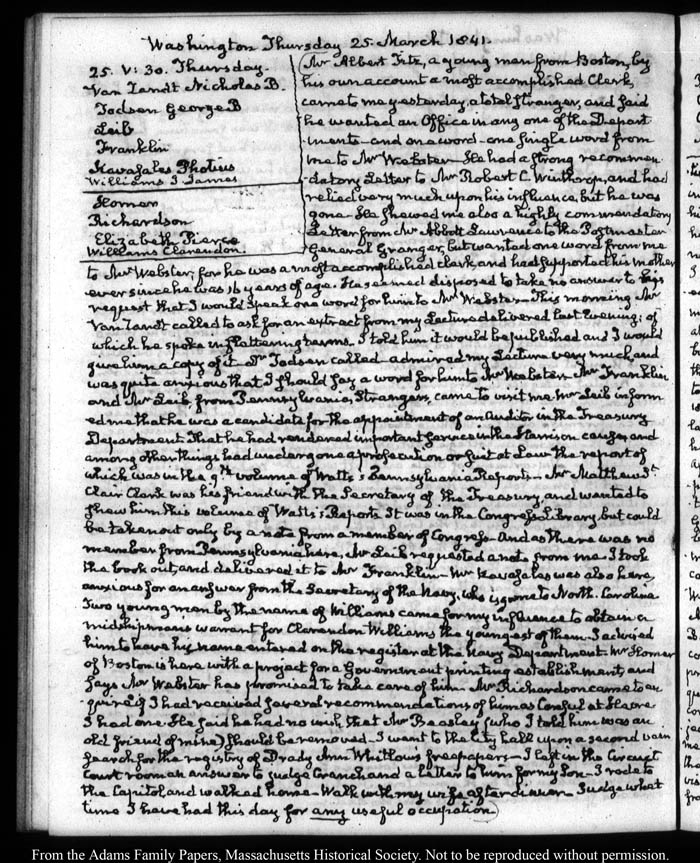 Washington Thursday 25. March 1841.
25. V: 30. Thursday.
Van Zandt Nicholas B.
Todsen George B
Leib
Franklin
Kavasales Photius
Williams J James
Homer
Richardson
Elizabeth Pierce
Williams Clarendon
Mr Albert Fitz, a young man from Boston, by
his own account a most accomplished Clerk,
came to me yesterday, a total stranger, and said
he wanted an Office in any one of the Depart
ments—and one word—one single word from
me to Mr Webster—He had a strong recommen
datory Letter to Mr Robert C. Winthrop, and had
relied very much upon his influence, but he was
gone—He shewed me also a highly commendatory
Letter from Mr Abbott Lawrence to the Postmaster
General Granger, but wanted one word from me
to Mr Webster, for he was a most accomplished clerk, and had supported his mother
ever since he was 16 years of age. He seemed disposed to take no answer to his
request that I would speak one word for him to Mr Webster—This morning Mr
Van Zandt called to ask for an extract from my Lecture delivered last Evening; of
which he spoke in flattering terms. I told him it would be published and I would
give him a copy of it. Dr Todsen called—admired my Lecture very much, and
was quite anxious that I should say a word for him to Mr Webster—Mr Franklin
and Mr Leib, from Pennsylvania, Strangers, came to visit me. Mr Leib inform
ed me that he was a candidate for the appointment of an Auditor in the Treasury
Department. That he had rendered important service in the Harrison cause, and
among other things had undergone a prosecution or suit at Law the report of
which was in the 9th volume of Watts's Pennsylvania Reports—Mr Matthew St
Clair Clark was his friend with the Secretary of the Treasury, and wanted to
shew him this volume of Watts's Reports. It was in the Congress Library, but could
be taken out only by a note from a member of Congress—And as there was no
member from Pennsylvania here, Mr Leib requested a note from me. I took
the book out, and delivered it to Mr Franklin—Mr Kavasales was also here,
anxious for an answer from the Secretary of the Navy, who is gone to North. Carolina
Two young men by the name of Williams came for my influence to obtain a
midshipman's warrant for Clarendon Williams the youngest of them. I advised
him to have his name entered on the register at the Navy Department. Mr Homer
of Boston is here with a project for a Government printing establishment, and
says Mr Webster has promised to take care of him—Mr Richardson came to en
quire if I had received several recommendations of him as Consul at Havre
I had one. He said he had no wish that Mr Beasley (who I told him was an
old friend of mine) should be removed—I went to the City hall upon a second vain
search for the registry of Drady Ann Whitlow's free papers—I left in the Circuit
Court room an answer to Judge Cranch and a letter to him for my Son—I rode to
the Capitol and walked home—Walk with my wife after dinner—Judge what
time I have had this day for any useful occupation.
From the Adams Family Papers, Massachusetts Historical Society. Not to be reproduced without permission.